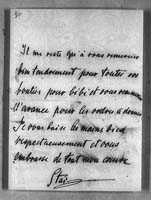 Il me reste qu'à vous remercier
bien tendrement pour toutes vos
bontés pour bibi et vous remercier
d'avance pour les ordres à donner
Je vous baise les mains bien
respectueusement et vous
embrasse de tout mon coeur